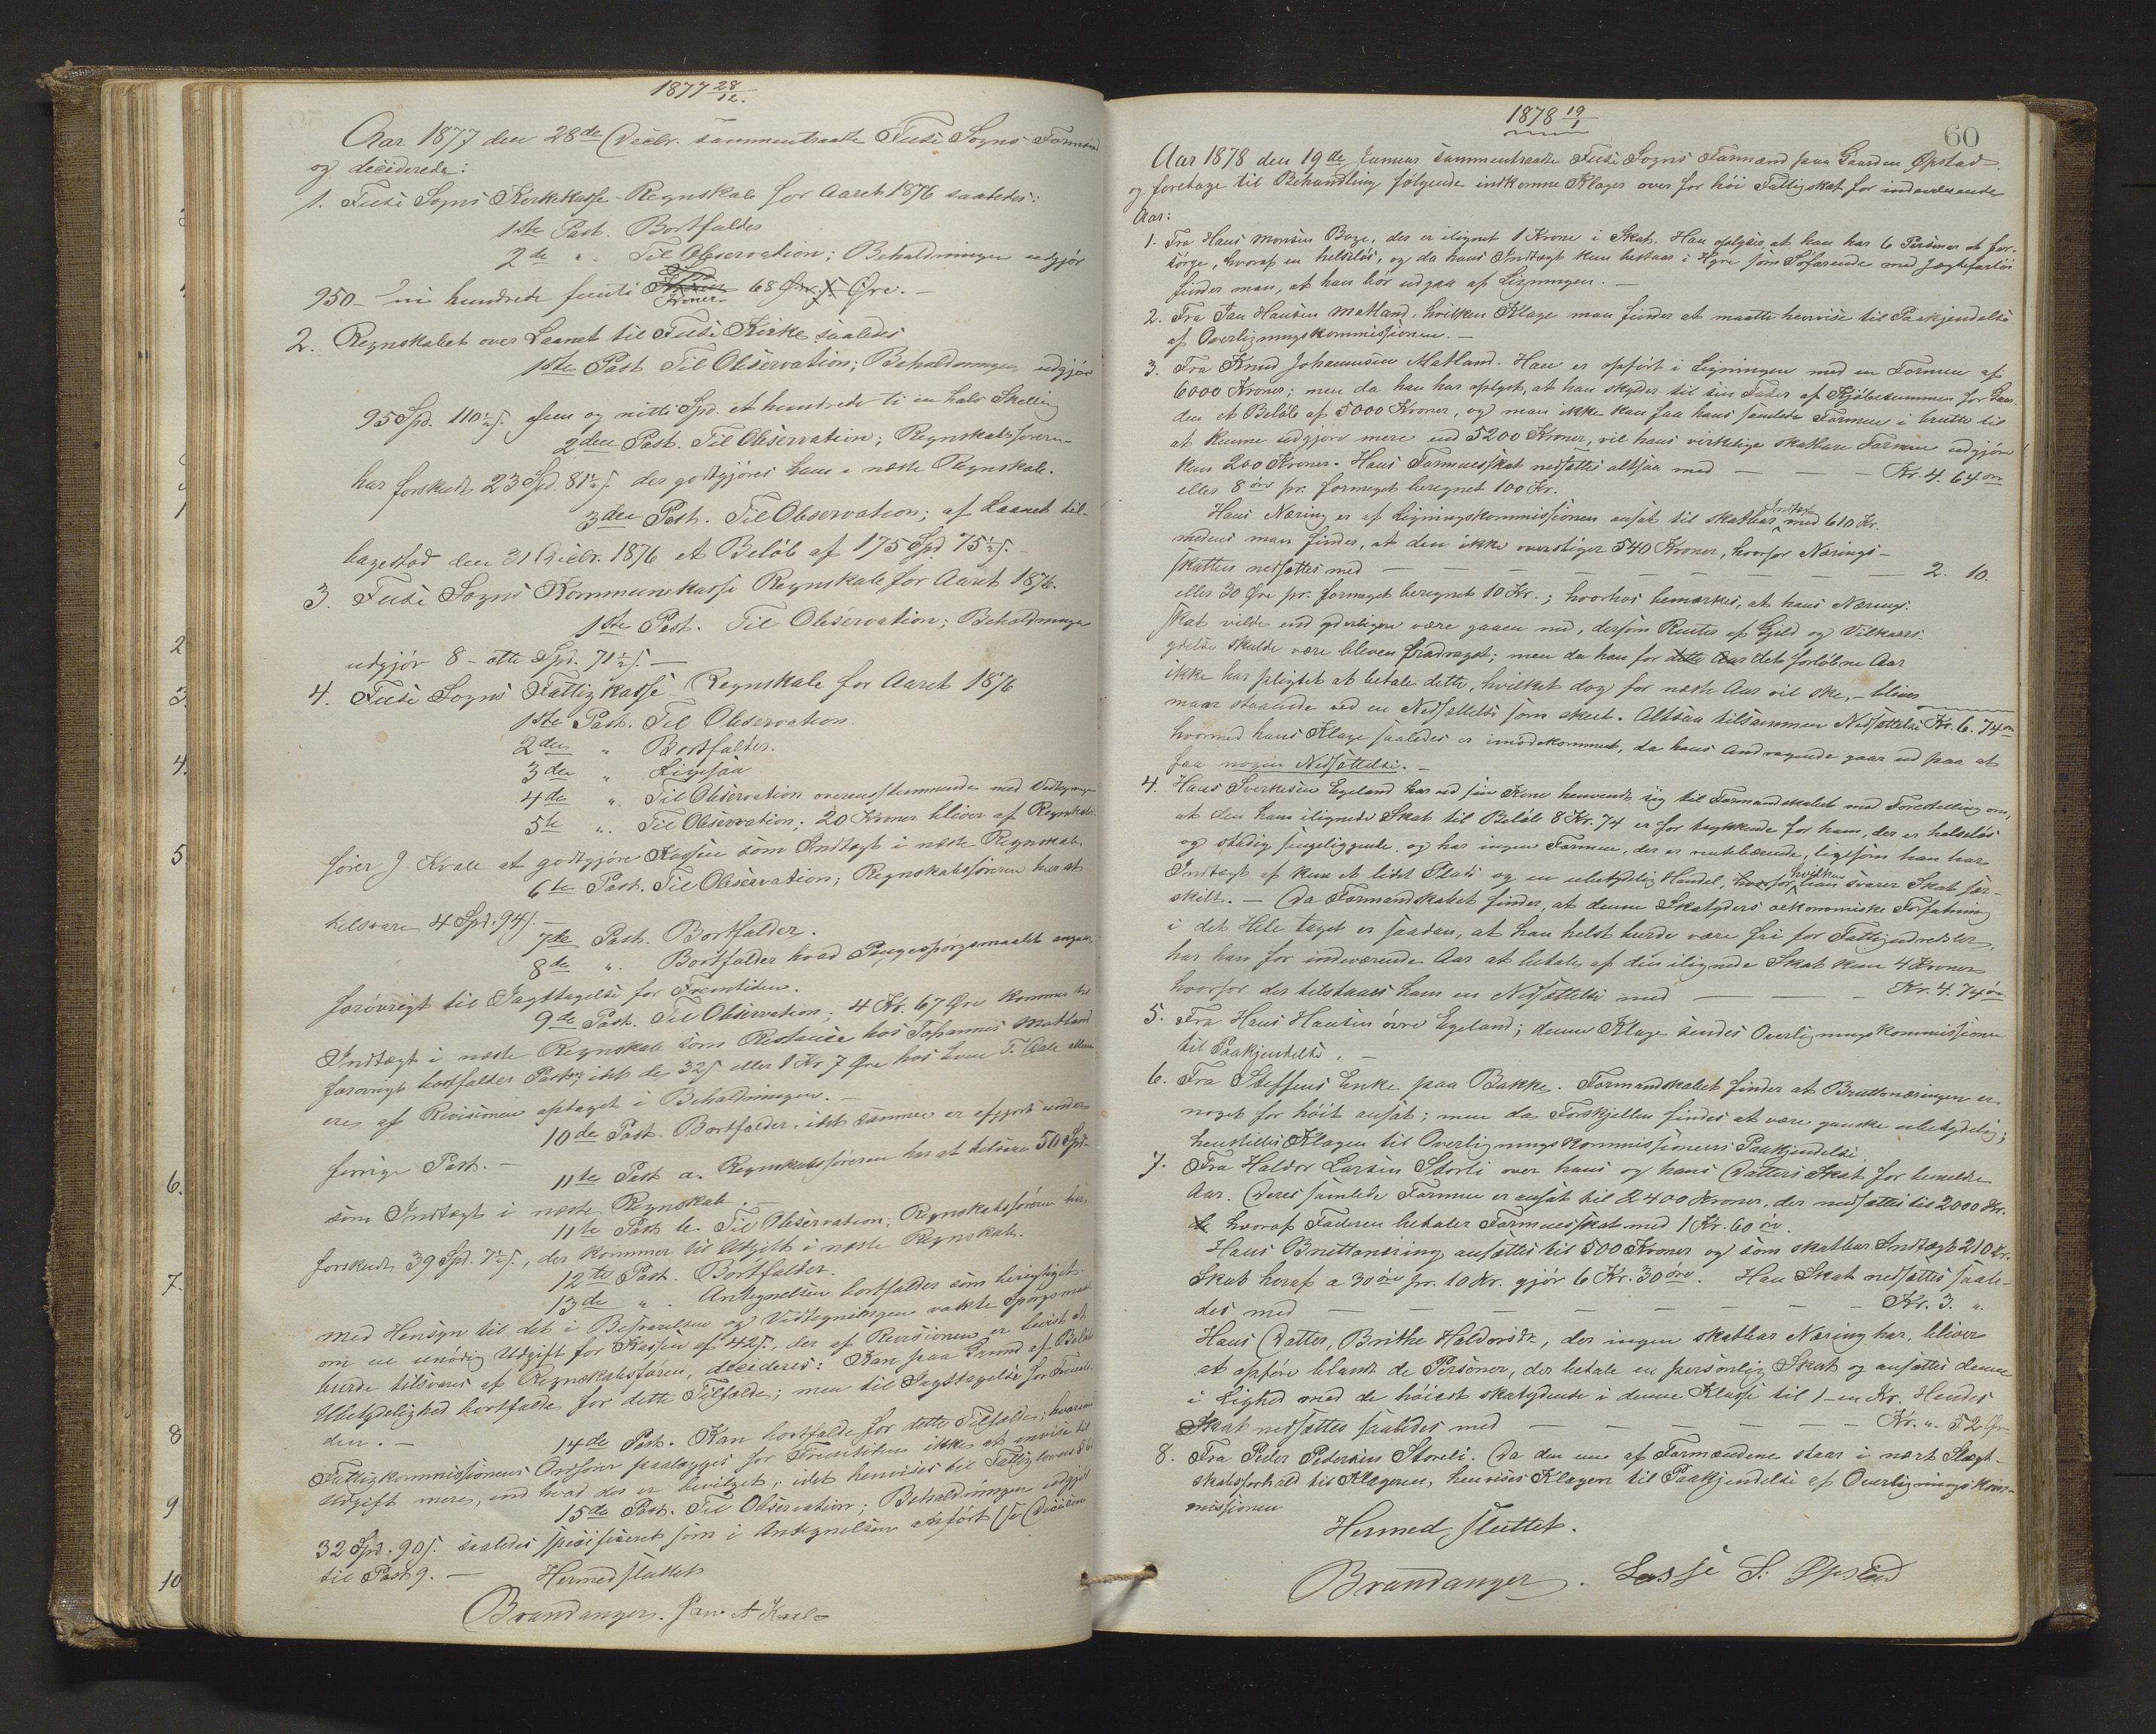 1877 28/12.
Aar 1877 den 28de Decbr. sammentraadte Fuse Sogns Formænd
og deciderede:
1. Fuse Sogns Kirkekasse-Regnskab for Aaret 1876 saaledes:
1ste Post. Bortfalder
2de " . Til Observation; Beholdningen udgjør
950 - ni hundrede femti Kroner 68 Øre. -
2. Regnskabet over Laanet til Fuse Kirke saaledes
1ste Post Til Observation; Beholdningen udgjør
95 Spd. 110½ s. fem og nitti Spd. et hundrede ti en halv Skilling
2den Post. Til Observation; Regnskabsføreren
har forskudt 23 Spd. 81½ s. der godtgjøres ham i næste Regnskab.
3die Post. Til Observation; af Laanet til-
bagestod den 31 Decbr. 1876 et Beløb af 175 Spd 75½ s. -
3. Fuse Sogns Kommunekasse Regnskab for Aaret 1876.
1ste Post. Til Observation; Beholdningen
udgjør 8 - otte Spd. 71½ s. -
4. Fuse Sogns Fattigkasse Regnskab for Aaret 1876
1ste Post. Til Observation
2den " Bortfalder.
3die " Ligesaa
4de " . Til Observation overensstemmende med Vedtegningen
5te " . Til Observation; 20 Kroner bliver af Regnskabs-
fører J. Kvale at godtgjøre Kassen som Indtægt i næste Regnskab
6te Post. Til Observation; Regnskabsføreren har at
tilsvare 4 Spd. 94 s. -
7de Post. Bortfalder.
8de " . Bortfalder hvad Pengespørgsmaalet angaar,
forøvrigt til Iagttagelse for Fremtiden.
9de Post. Til Observation; 4 Kr. 67 Øre kommer til
Indtægt i næste Regnskab som Restance hos Johannes Matland
forøvrigt bortfalder Posten, idet de 32 s. eller 1 Kr 7 Øre hos
eres af Revisionen optaget i Beholdningen. -
10de Post. Bortfalder, idet samme er afgjort under
forrige Post. -
11te Post a. Regnskabsføreren har at tilsvare 50 Spd.
som Indtægt i næste Regnskab. -
11te Post b. Til Observation; Regnskabsføreren har
forskudt 39 Spd. 7½ s., der kommer til Udgift i næste Regnskab.
12te Post. Bortfalder.
13de " . Antegnelsen bortfalder som berigtiget.
Med Hensyn til det i Besvarelsen og Vedtegningen vakte Spørgsmaal
om en unødig Udgift for Kassen af 42 s., der af Revisionen er bevist at
burde tilsvares af Regnskabsføren, decideres: Kan paa Grund af Beløbets
Ubetydelighed bortfalde for dette Tilfælde; men til Iagttagelse for Fremti-
den. -
14de Post. Kan bortfalde for dette Tilfælde; hvorimod
Fattigkommissionens Ordfører paalægges for Fremtiden ikke at anvise til
Udgift mere, end hvad der er bevilget; idet henvises til Fattiglovens §
15de Post. Til Observation; Beholdningen udgjør
32 Spd. 90 s. saaledes specificeret som i Antegnelsen anført (se Decision
til Post 9. -
Hermed sluttet
Brandanger. Jan A Kvale
2
3.
4.
5
6.
7.
8
9
10
1878 19/1
60
Aar 1878 den 19de Januar sammentraadte Fuse Sogns Formænd paa Gaarden Øpstad
og foretoge til Behandling følgende indkomne Klager over for høi Fattigskat for indeværende
Aar:
1. Fra Hans Monsen Boge, der er ilignet 1 Krone i Skat. Han oplyses, at han har 6 Personer at for-
sørge, hvoraf en helseløs, og da hans Indtægt kun bestaar i Hyre som Søfarende med Jægtefartøi
finder man, at han bør udgaa af Ligningen. -
2. Fra Jan Hansen Matland, hvilken Klage man finder at maatte henvise til Paakjendelse
af Overligningskommissionen. -
3. Fra Knud Johannesen Matland. Han er opført i Ligningen med en Formue af
6000 Kroner; men da han har oplyst, at han skylder til sin Fader af Kjøbesummen for Gaar-
den et Beløb af 5000 Kroner, og man ikke kan faa hans samlede Formue i brutto til
at kunne udgjøre mere end 5200 Kroner, vil hans virkelige skatbare Formue udgjøre
kun 200 Kroner. Hans Formuesskat nedsættes altsaa med - - - Kr. 4. 64 øre
eller 8 øre pr. formeget beregnet 100 Kr.
Hans Næring er af Ligningskommissionen ansat til skatbar Indtægt med 610 Kr.
medens man finder, at den ikke overstiger 540 Kroner, hvorfor Nærings-
skatten nedsættes med - - - - - - - - - - 2. 10.
eller 30 Øre pr. formeget beregnet 10 Kr.; hvorhos bemærkes, at hans Nærings-
skat vilde end yderligere være gaaen ned, dersom Renter af Gjeld og Vilkaars-
ydelse skulde være bleven fradraget; men da han for dette Aar det forløbne Aar
ikke har pligtet at betale dette, hvilket dog for næste Aar vil ske, - bliver
man staaende ved en Nedsættelse som skeet. Altsaa tilsammen Nedsættelse Kr. 6. 74 øre
hvormed hans Klage saaledes er imødekommet, da hans Andragende gaar ud paa at
faa nogen Nedsættelse. -
4. Hans Sverkesen Egeland har ved sin Kone henvendt sig til Formandskabet med Forestilling om,
at den ham ilignede Skat til Beløb 8 Kr. 74 er for trykkende for ham, der er helseløs
og stadig sengeliggende, og har ingen Formue, der er rentebærende, ligesom han har
Indtægt af kun et lidet Plads og en ubetydelig Handel, hvorfor hvilken han svarer Skat sær-
skilt. - Da Formandskabet finder, at denne Skatyders oekonomiske Forfatning
i det Hele taget er saadan, at han helst burde være fri for Fattigudredsler,
har han for indeværende Aar at betale af den ilignede Skat kun 4 Kroner
hvorfor der tilstaaes ham en Nedsættelse med - - - Kr. 4. 74 øre
5. Fra Hans Hansen øvre Egeland; denne Klage sendes Overligningskommissionen
til Paakjendelse. -
6. Fra Steffens Enke paa Bakke. Formandskabet finder at Bruttonæringen er
noget for høit ansat; men da Forskjellen findes at være ganske ubetydelig;
henstilles Klagen til Overligningskommissionens Paakjendelse.
7. Fra Haldor Larsen Storli over hans og hans Datters Skat for bemeldte
Aar. Deres samlede Formue er ansat til 2400 Kroner, der nedsættes til 2000 Kr.
hvoraf Faderen betaler Formuesskat med 1 Kr. 60 øre.
Hans Bruttonæring ansættes til 500 Kroner og som skatbar Indtægt 210 Kr.
Skat heraf a 30 øre pr. 10 Kr. gjør 6 Kr. 30 øre. Han Skat nedsættes saale-
des med - - - - - - - Kr. 3. "
Hans Datter, Brithe Haldorsdtr, der ingen skatbar Næring har, bliver
at opføre blandt de Personer, der betale en personlig Skat og ansættes denne
i Lighed med de høiest skatydende i denne Klasse til 1 - en Kr. Hendes
Skat nedsættes saaledes med - - - - - Kr. " 52 Øre
8. Fra Peder Pedersen Storeli. Da den ene af Formændene staar i nært Slægt-
skabsforhold til Klageren, henvises Klagen til Paakjendelse af Overligningskom-
missionen
Hermed sluttet.
Brandanger. Lasse S: Øpstad